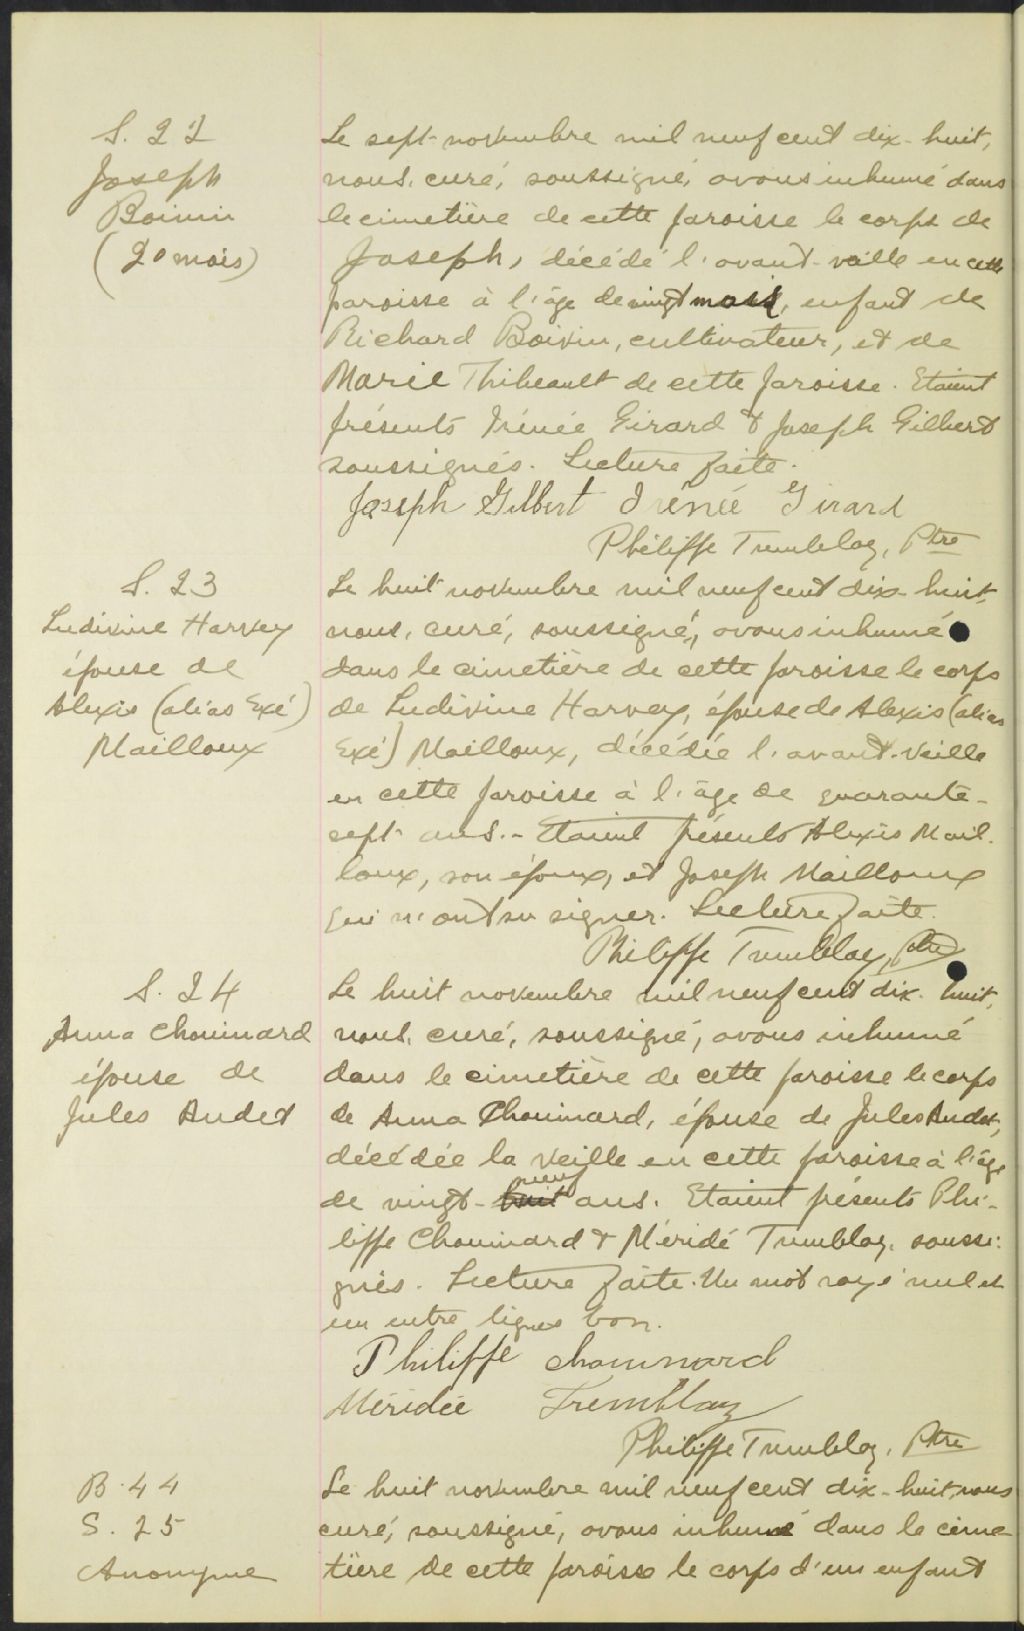 S. 22
Joseph
Boivin
(20 mois)
Le sept novembre mil neuf cent dix-huit,
nous, curé, soussigné, avons inhumé dans
le cimetière de cette paroisse le corps de
Joseph, décédé l'avant-veille en cette
paroisse à l'âge de vingt mois, enfant de
Richard Boivin, cultivateur, et de
Marie Thibeault de cette paroisse. Etaient
présents Irénée Girard & Joseph Gilbert
soussignés. Lecture faite.
Joseph Gilbert Irénée Girard
Philippe Tremblay, Ptre
S. 23
Ludivine Harvey
épouse de
Alexis (alias Exé)
Mailloux
Le huit novembre mil neuf cent dix-huit,
nous, curé, soussigné, avons inhumé
dans le cimetière de cette paroisse le corps
de Ludivine Harvey, épouse de Alexis (alias
Exé) Mailloux, décédée l'avant-veille
en cette paroisse à l'âge de quarante-
sept ans. - Etaient présents Alexis Mail-
loux, son époux, et Joseph Mailloux
qui n'ont su signer. Lecture faite.
Philippe Tremblay, Ptre
S. 24
Anna Chouinard
épouse de
Jules Audet
Le huit novembre mil neuf cent dix-huit,
nous, curé, soussigné, avons inhumé
dans le cimetière de cette paroisse le corps
de Anna Chouinard, épouse de Jules Audet,
décédée la veille en cette paroisse à l'âge
neuf
de vingt-huit ans. Etaient présents Phi-
lippe Chouinard & Méridé Tremblay, soussi-
gnés. Lecture faite. Un mot rayé nul et
un entre lignes bon.
Philippe Chouinard
Méridée Tremblay
Philippe Tremblay, Ptre
B. 44
S. 25
Anonyme
Le huit novembre mil neuf cent dix-huit, nous
curé, soussigné, avons inhumé dans le cime
tière de cette paroisse le corps d'un enfant